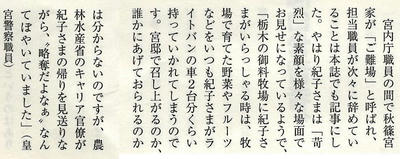 宮内庁職員の間で秋篠宮
家が「ご難場」と呼ばれ、
担当職員が次々に辞めてい
ることは本誌でも記事にし
た。やはり紀子さまは「苛
烈」な素顔を様々な場面で
お見せになっているようで、
「栃木の御料牧場に紀子さ
まがいらっしゃる時は、牧
場で育てた野菜やフルーツ
などをいつも紀子さまがラ
イトバンの車２台分くらい
持っていかれてしまうので
す。宮邸で召し上がるのか、
誰かにあげておられるのか
は分からないのですが、農
林水産省のキャリア官僚が
紀子さまの帰りを見送りな
がら、〝略奪だよなぁ〟なん
てぼやいていました」（皇
宮警察職員）